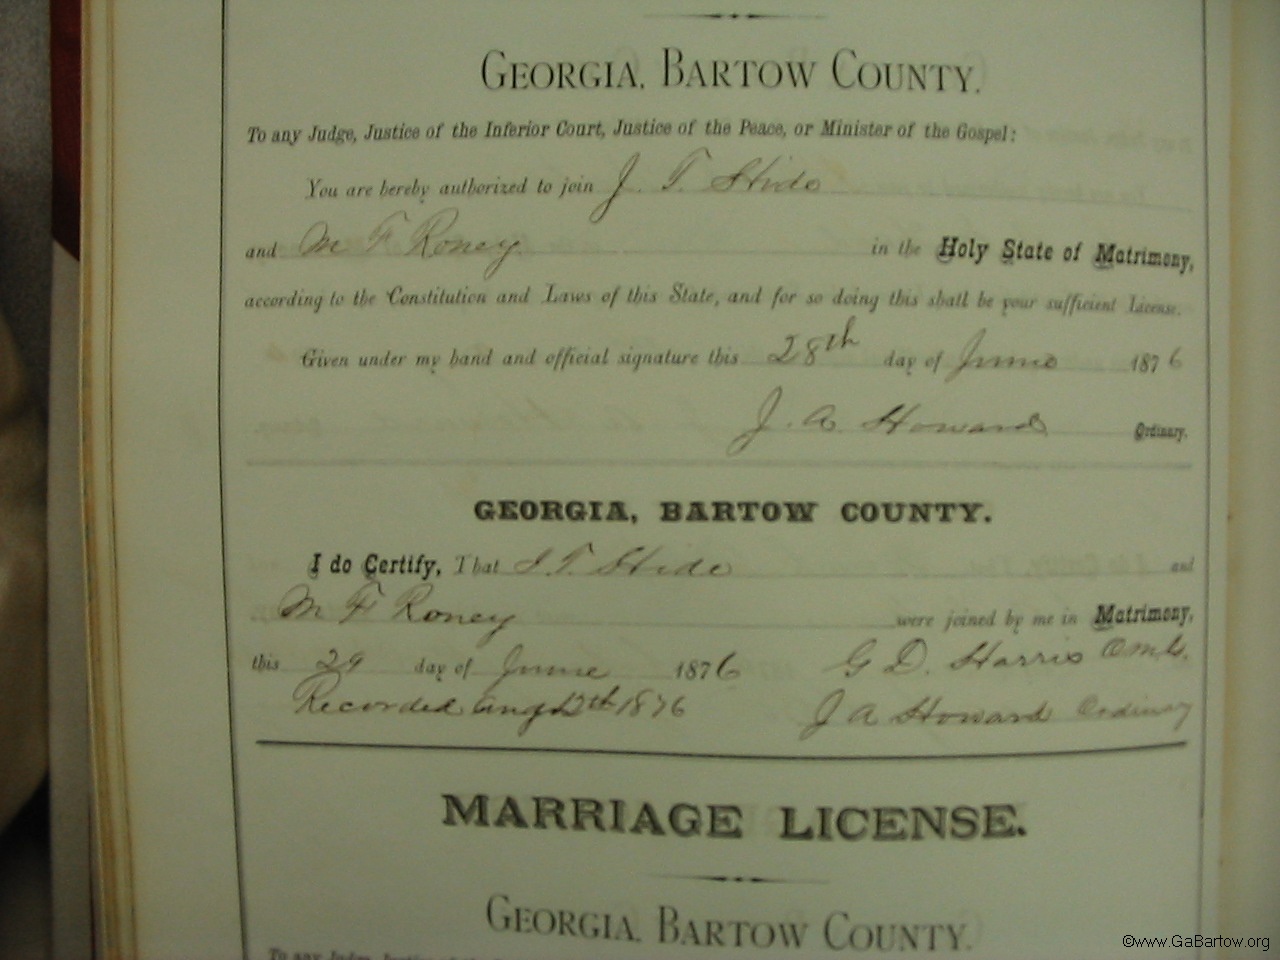 GEORGIA, BARTOW COUNTY.
To any Judge, Justice of the Inferior Court, Justice of the Peace, or Minister of the Gospel:
You are hereby authorized to join J. T. Hide
and M F Roney in the Holy State of Matrimony,
according to the Constitution and Laws of this State, and for so doing this shall be your sufficient License.
Given under my hand and official signature this 28th day of June 1876
J. A. Howard Ordinary.
GEORGIA, BARTOW COUNTY.
I do Certify, That J. T. Hide and
M F Roney were joined by me in Matrimony,
this 29 day of June 1876 G D. Harris
Recorded Aug 12th 1876 J A Howard Ordinary
MARRIAGE LICENSE.
GEORGIA, BARTOW COUNTY.
To any Judge, Justice of
©www.GaBartow.org